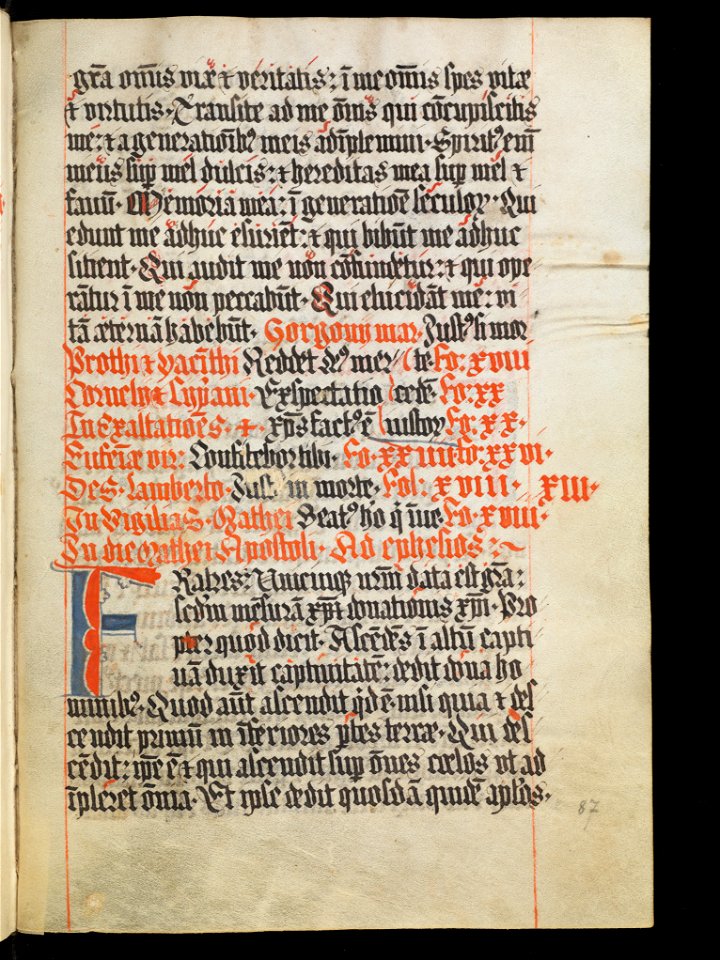 gr̄a om̄is uiæ ⁊ ueritatis: ī me om̄is spes uitæ
⁊ uirtutis. Transite ad me om̄s qui cōcupiscitis
me: ⁊ a generatiōib᷒ meis adīplemini. Spirit᷒ em̄
meus sup̄ mel dulcis: ⁊ hereditas mea sup̄ mel ⁊
fauū. Memoria mea: ī generatiōe seculoꝝ. Qui
edunt me adhuc esuriēt: ⁊ qui bibūt me adhuc
sitient. Qui audit me non cōfundetur: ⁊ qui ope
rātur ī me nōn peccabūt. Qui elucidāt me: ui
tā æternā habebūt. Gorgony mar. Just᷒ si mor
Prothi ⁊ Jacīthi Reddet de᷒ mer te Fo. xviii
Cornely ⁊ Cypiani. Exspectatio cedē. Fo. xx
In Exaltatiōe S. ✝. xp̄s fact᷒ ē iustoꝝ Fo. xx.
Eufemiæ vir: Confitebor tibi. Fo. xxiiii fo. xxvi.
Des. Lamberto. Just in morte. Fol. xviii. xiii.
In Vigilia S. Mathei Beat᷒ ho q̄ īue Fo. xviii.
In die Mathei Apostoli. Ad ephesios:
FRatres: Unicuiqꝫ nrm̄ data est gr̄a:
scd̄m mēsurā donationis xp̄i. Pro
pter quod dicit. Ascēdēs ī altū capti
uā duxit captiuitatē: dedit dona ho
minib᷒. Quod aūt ascendit qd̄ ē: nisi quia ⁊ des
cendit primū in īferiores p̄tes terræ. Qui des
cēdit: ip̄e ē ⁊ qui ascendit sup̄ ōnes cœlos ut ad
īpleret ōnia. Et ipse dedit quosdā quidē apl̄os,
87